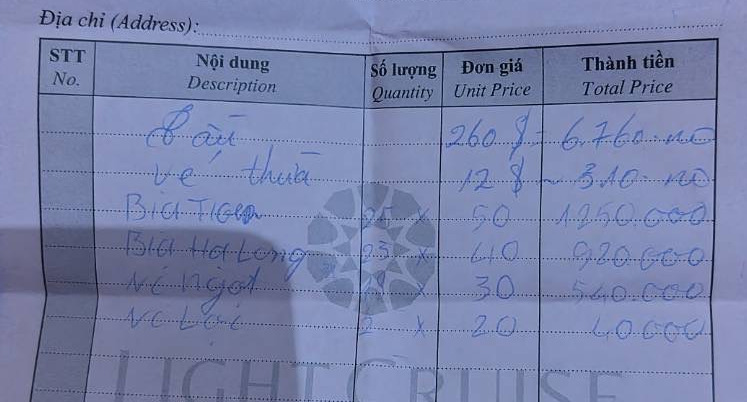 Địa chỉ (Address):
STT Nội dung Số lượng Đơn giá Thành tiền
No. Description Quantity Unit Price Total Price
Tàu 260 $ = 6.760.000
vé thừa 12 $ ~ 310.000
Bia Tiger 25 x 50 1.250.000
Bia Ha Long 23 x 40 920.000
Nc Ngọt 18 x 30 540.000
Nc Lọc 2 x 20 40.000
LIGHT CRUISE